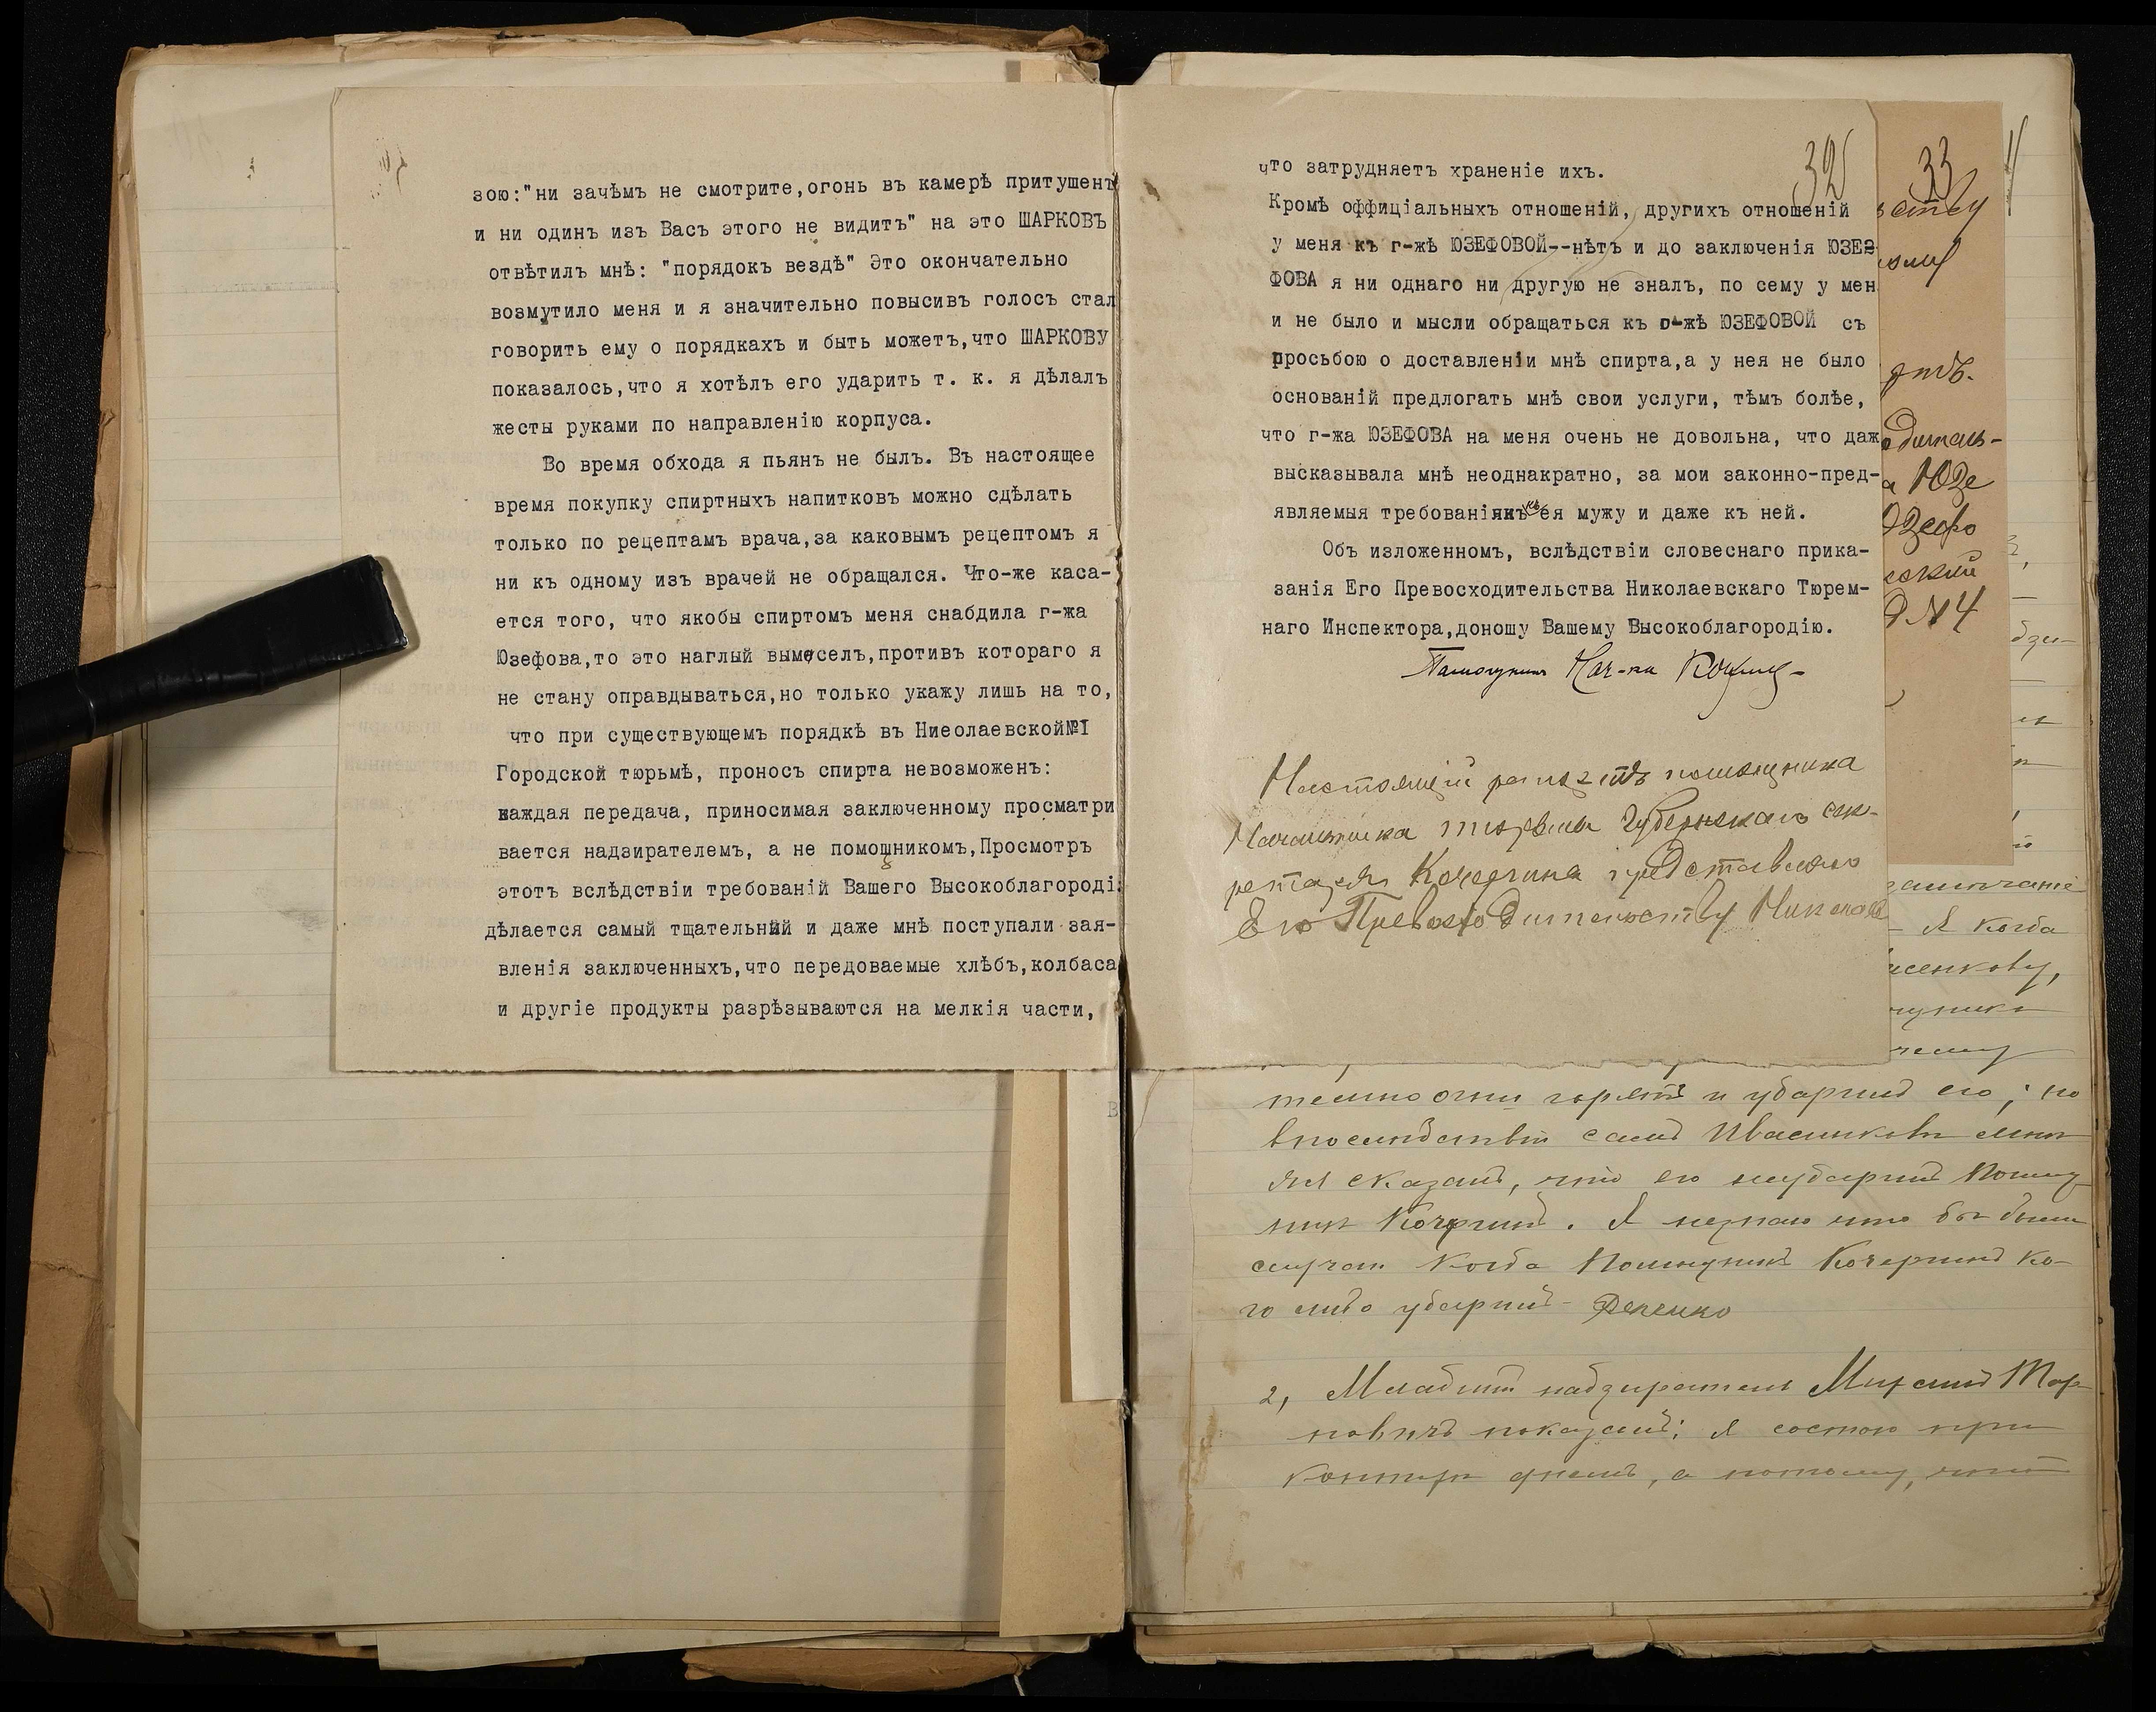 зою:"ни зачѣмъ не смотрите,огонь въ камерѣ притушенъ
и ни одинъ изъ Васъ этого не видитъ" на это ШАРКОВЪ
отвѣтилъ мнѣ: "порядокъ вездѣ" Это окончательно
возмутило меня и я значительно повысивъ голосъ стал
говорить ему о порядкахъ и быть можетъ,что ШАРКОВУ
показалось,что я хотѣлъ его ударить т. к. я дѣлалъ
жесты руками по направленію корпуса.
Во время обхода я пьянъ не былъ. Въ настоящее
время покупку спиртныхъ напитковъ можно сдѣлать
только по рецептамъ врача,за каковымъ рецептомъ я
ни къ одному изъ врачей не обращался. Что-же каса-
ется того, что якобы спиртомъ меня снабдила г-жа
Юзефова,то это наглый вымыселъ,противъ котораго я
не стану оправдываться,но только укажу лишь на то,
что при существующемъ порядкѣ въ Ниеолаевской№I
Городской тюрьмѣ, проносъ спирта невозможенъ:
каждая передача, приносимая заключенному просматри
вается надзирателемъ, а не помощникомъ,Просмотръ
этотъ вслѣдствіи требованій Вашего Высокоблагороді
дѣлается самый тщательный и даже мнѣ поступали зая-
вленія заключенныхъ,что передоваемые хлѣбъ,колбаса
и другіе продукты разрѣзываются на мелкія части,
325
что затрудняетъ храненіе ихъ.
Кромѣ оффиціальныхъ отношеній, другихъ отношеній
у меня къ г-жѣ ЮЗЕФОВОЙ--нѣтъ и до заключенія ЮЗЕ
ФОВА я ни однаго ни другую не зналъ, по сему у мен
и не было и мысли обращаться къ г-жѣ ЮЗЕФОВОЙ съ
просьбою о доставленіи мнѣ спирта,а у нея не было
основаній предлогать мнѣ свои услуги, тѣмъ болѣе,
что г-жа ЮЗЕФОВА на меня очень не довольна, что даж
высказывала мнѣ неоднакратно, за мои законно-пред-
являемыя требованія къ ея мужу и даже къ ней.
Объ изложенномъ, вслѣдствіи словеснаго прика-
занія Его Превосходительства Николаевскаго Тюрем-
наго Инспектора,доношу Вашему Высокоблагородію.
Помощникъ Нач-ка
Настоящій рапортъ помощника
Начальника тюрьмы Губернскаго сек-
ретаря Кочергина представляю
Его Превосходительству Никола
33
Юзе
Юзефо
№ 4
Я когда
горятъ и ударилъ его; но
впослѣдствіи самъ Ивасенковъ мнѣ
сказалъ, что его неударилъ Помощ
никъ Кочергинъ. Я незнаю что бы были
случаи когда Помощникъ Кочергинъ ко-
го либо ударилъ -
2, Младшій надзиратель
показалъ: я состою при
конторѣ днемъ, а потому, что